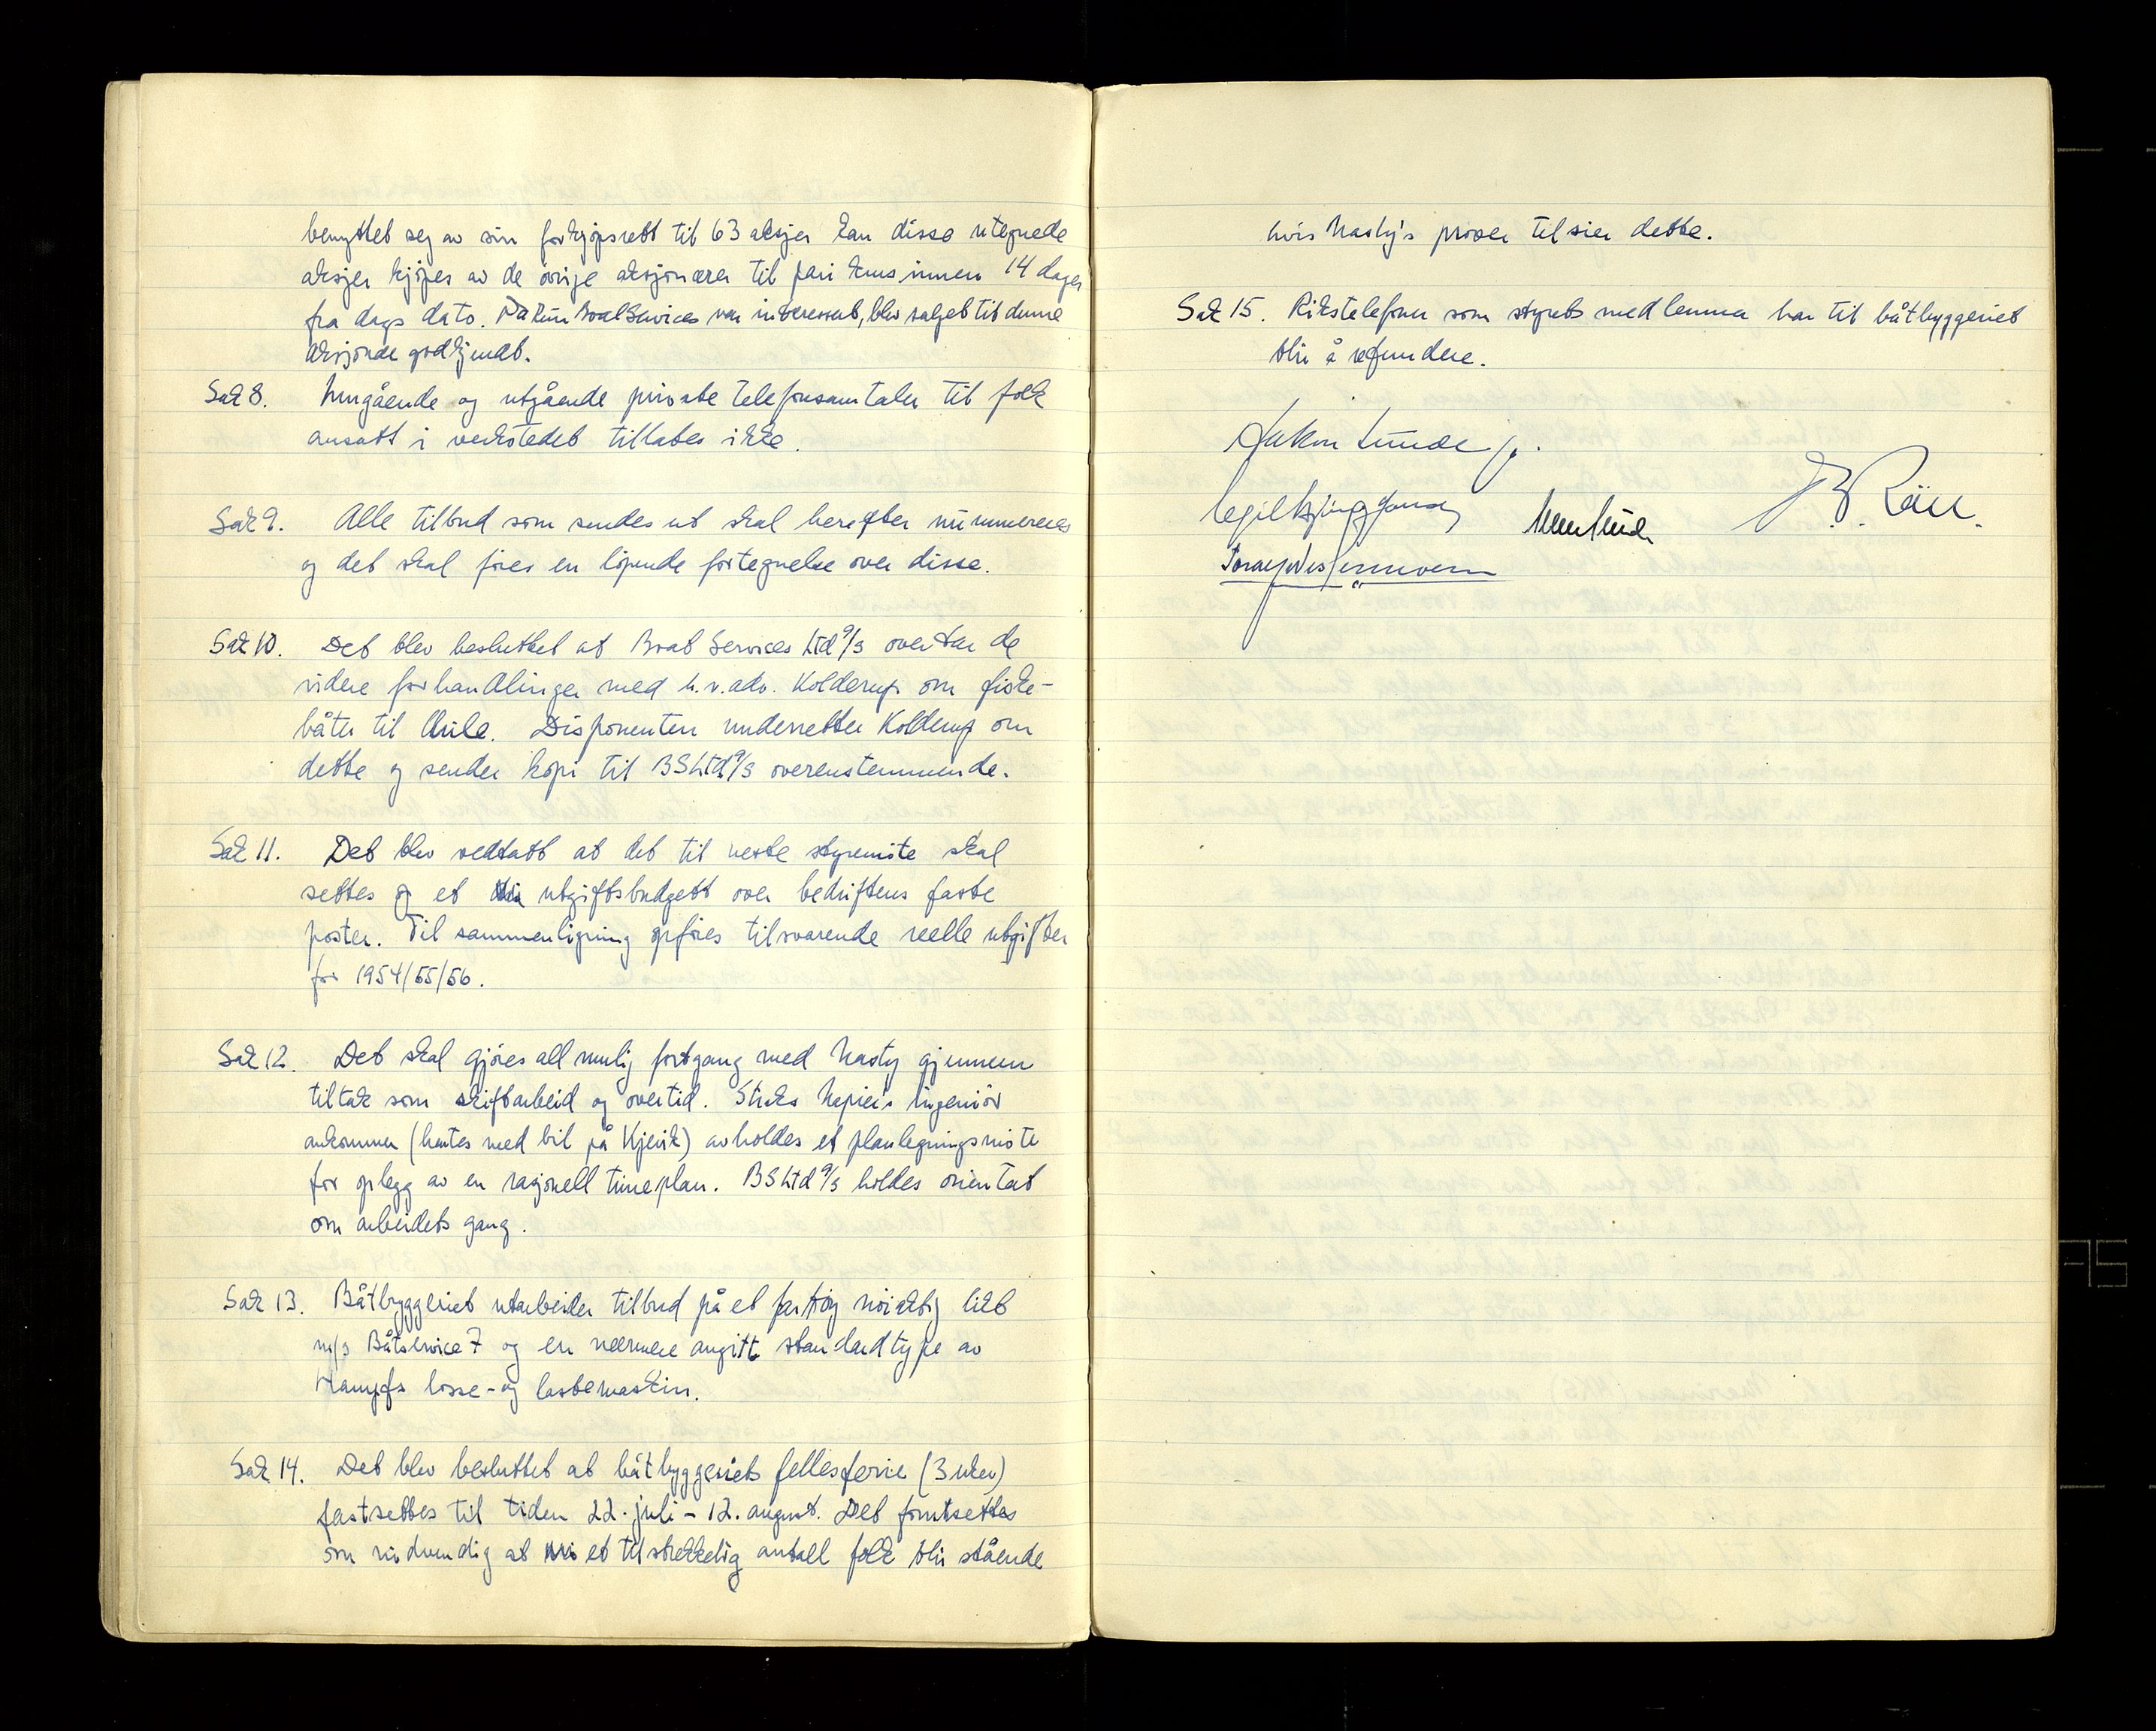 benyttet seg av sin forkjøpsrett til 63 aksjer kan disse utegnede
aksjer kjøpes av de övrige aksjonærer til pari kurs innen 14 dager
fra dags dato. Da kun Boat Services var interessert, blev salget til denne
aksjonær godkjendt.
Sak 8. Inngående og utgående private telefonsamtaler til folk
ansatt i verkstedet tillates ikke.
Sak 9. Alle tilbud som sendes ut skal herefter nummereres
og det skal föres en löpende fortegnelse over disse.
Sak 10. Det blev besluttet at Boat Services Ltd A/S overtar de
videre forhandlinger med h.r.adv. Kolderup om fiske-
båter til Chile. Disponenten underretter Kolderup om
dette og sender kopi til BSLtd A/S overenstemmende.
Sak 11. Det blev vedtatt at det til neste styremöte skal
settes op et utgiftsbudgett over bedriftens faste
poster. Til sammenligning opföres tilsvarende reelle utgifter
for 1954/55/56.
Sak 12. Det skal gjöres all mulig fortgang med Nasty gjennem
tiltak som skiftarbeid og overtid. Straks Napiers ingeniör
ankommer (hentes med bil på Kjevik) avholdes et planlegningsmöte
for oplegg av en rasjonell timeplan. BSLtd A/S holdes orientert
om arbeidets gang.
Sak 13. Båtbyggeriet utarbeider tilbud på et fartöy nöiaktig likt
m/s Båtservice 7 og en nærmere angitt standardtype av
Kampfs losse- og lastemaskin.
Sak 14. Det blev besluttet at båtbyggeriets fellesferie (3 uker)
fastsettes til tiden 22. juli - 12. august. Det forutsettes
som nödvendig at et tilstrekkelig antall folk blir stående
hvis Nasty's prover tilsier dette.
Sak 15. Rikstelefoner som styrets medlemmer har til båtbyggeriet
blir å refundere.
Håkon Lunde jr.